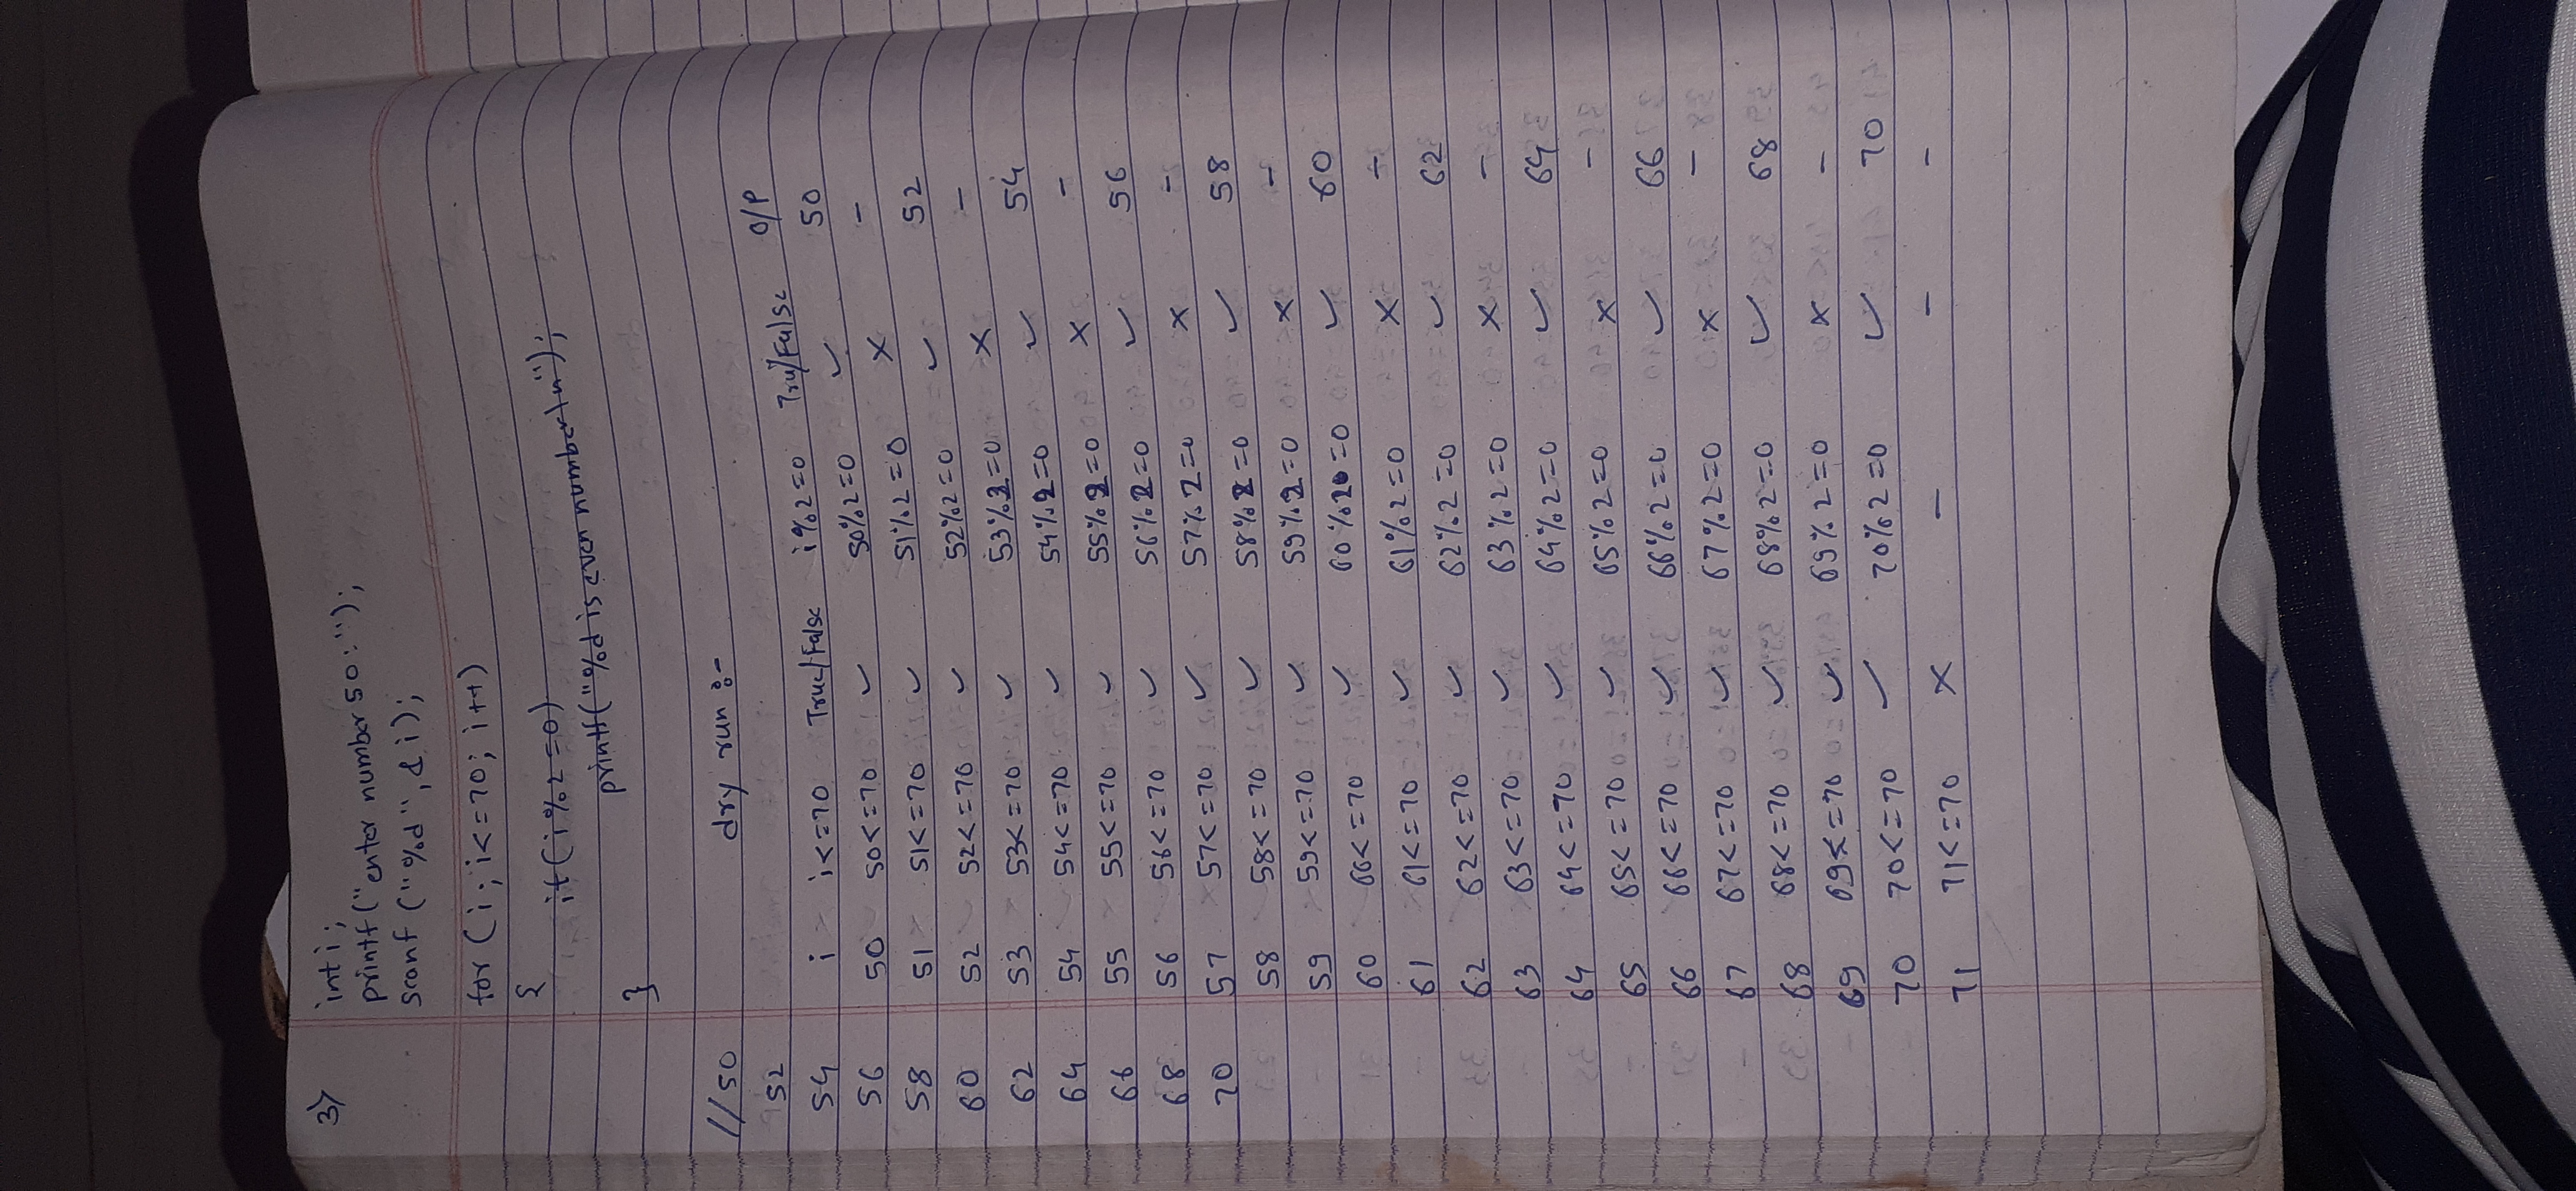 3)
int i;
printf("enter number 50:");
scanf ("%d", &i);
for (i; i<=70; i++)
{
if (i%2=0)
printf("%d is even number\n");
}
//50 dry run :-
52
54 i i<=70 True/False i%2=0 Tru/False O/P
56 50 50<=70 ✓ 50%2=0 ✓ 50
58 51 51<=70 ✓ 51%2=0 × -
60 52 52<=70 ✓ 52%2=0 ✓ 52
62 53 53<=70 ✓ 53%2=0 × -
64 54 54<=70 ✓ 54%2=0 ✓ 54
66 55 55<=70 ✓ 55%2=0 × -
68 56 56<=70 ✓ 56%2=0 ✓ 56
70 57 57<=70 ✓ 57%2=0 × -
58 58<=70 ✓ 58%2=0 ✓ 58
59 59<=70 ✓ 59%2=0 × -
60 66<=70 ✓ 60%2=0 ✓ 60
61 61<=70 ✓ 61%2=0 × -
62 62<=70 ✓ 62%2=0 ✓ 62
63 63<=70 ✓ 63%2=0 × -
64 64<=70 ✓ 64%2=0 ✓ 64
65 65<=70 ✓ 65%2=0 × -
66 66<=70 ✓ 66%2=0 ✓ 66
67 67<=70 ✓ 67%2=0 × -
68 68<=70 ✓ 68%2=0 ✓ 68
69 69<=70 ✓ 69%2=0 × -
70 70<=70 ✓ 70%2=0 ✓ 70
71 71<=70 × - - -